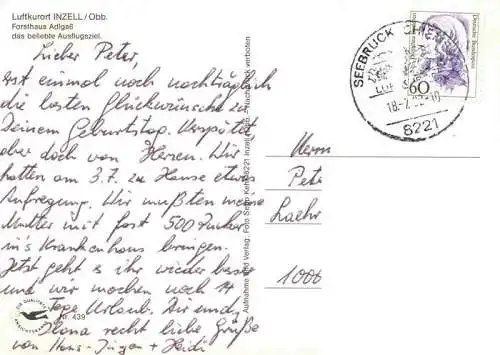 Luftkurort INZELL/Obb.
Forsthaus Adlgaß
das beliebte Ausflugsziel.
Lieber Peter,
erst einmal noch nachträglich
die besten Glückwünsche zu
Deinem Geburtstag. Verspätet,
aber doch von Herzen. Wir
hatten am 3.7. zu Hause etwas
Aufregung. Wir mußten meine
Mutter mit fast 500 Zucker
in's Krankenhaus bringen.
Jetzt geht es ihr wieder besser
und wir machen noch 14
Tage Urlaub. Dir und
Ilona recht liebe Grüße
von Hans-Jürgen + Heidi
439
Aufnahme und Verlag: Foto 8221 Inzell Nachdruck verboten
SEEBRUCK CHIEM
18.-7.
8221
Deutsche Bundespost
60
Herrn
Peter
Laehr
1000